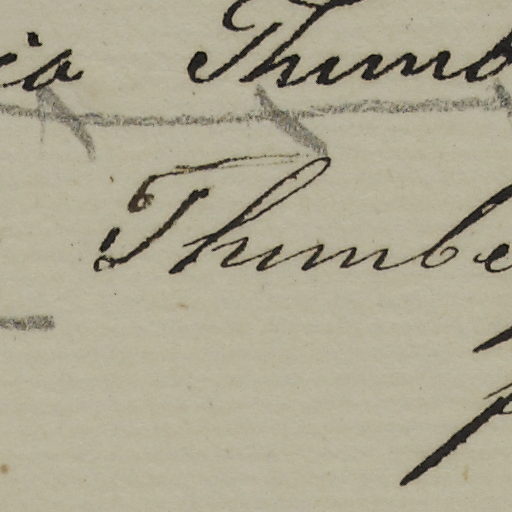 ia Thunb
Thunbe